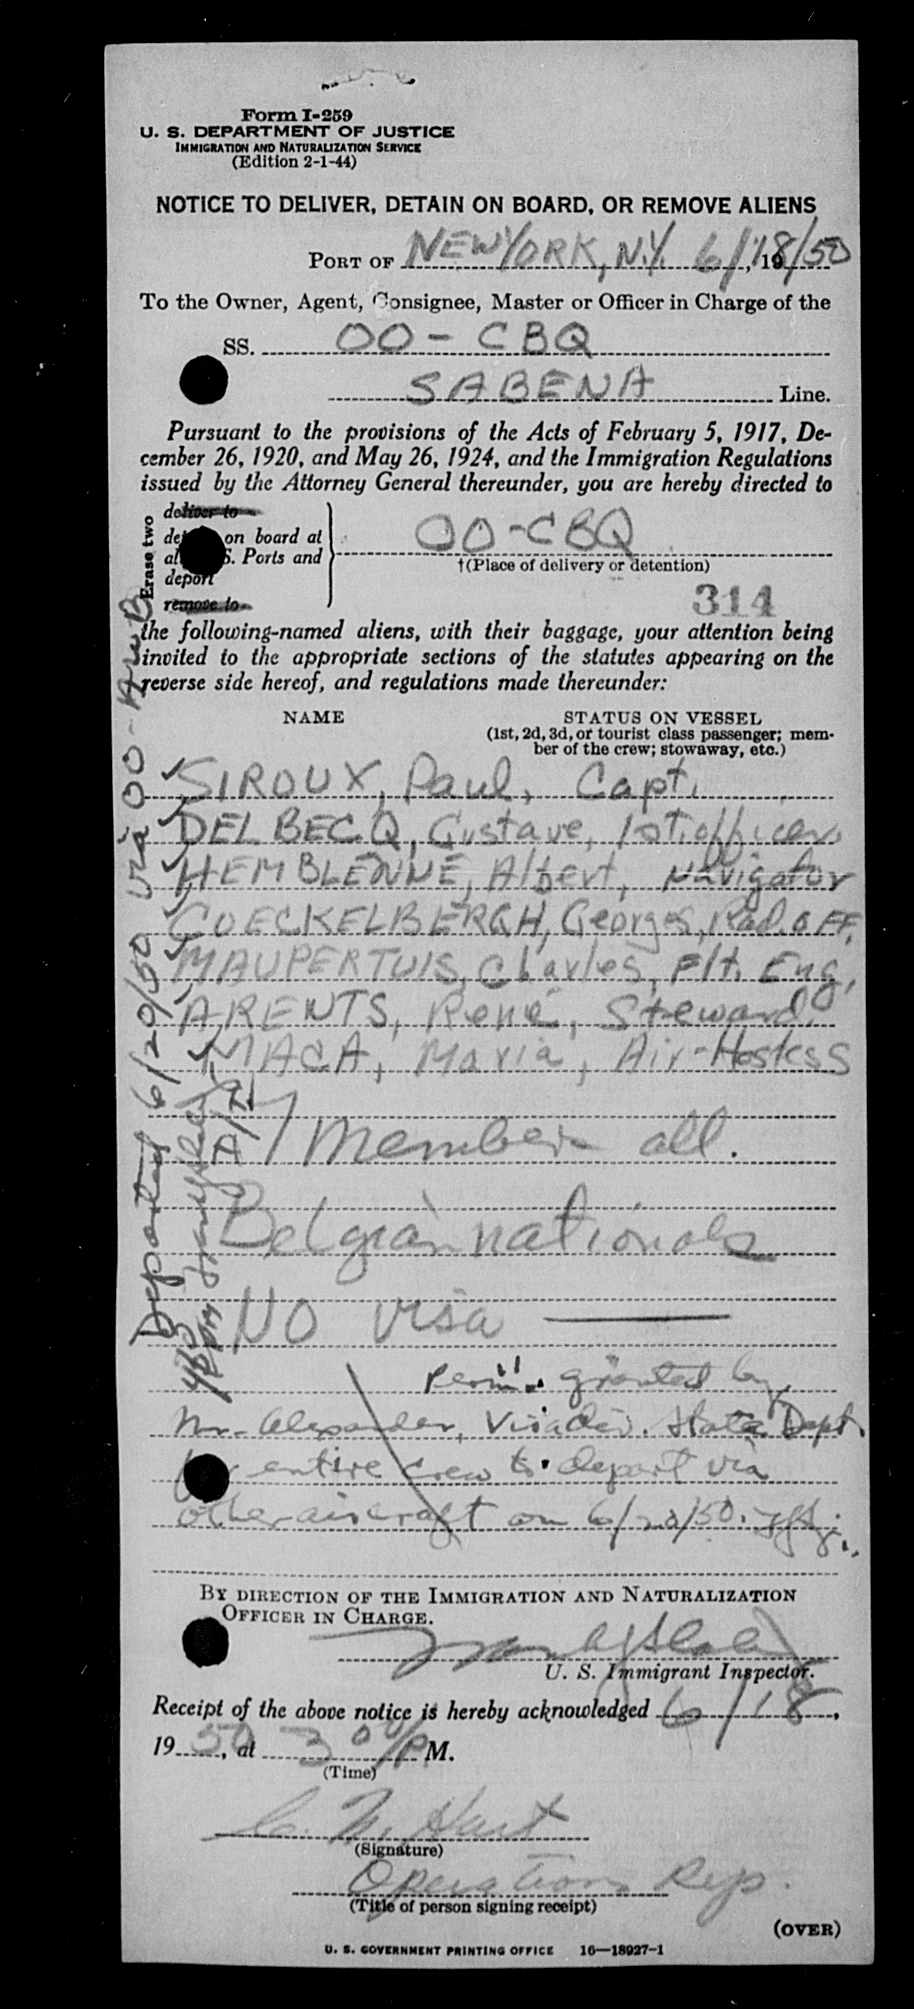 Form I-259
U. S. DEPARTMENT OF JUSTICE
IMMIGRATION AND NATURALIZATION SERVICE
(Edition 2-1-44)
NOTICE TO DELIVER, DETAIN ON BOARD, OR REMOVE ALIENS
PORT OF NEW YORK, N.Y. 6/18/50, 19
To the Owner, Agent, Consignee, Master or Officer in Charge of the
SS. OO-CBQ
SABENA Line.
Pursuant to the provisions of the Acts of February 5, 1917, De-
cember 26, 1920, and May 26, 1924, and the Immigration Regulations
issued by the Attorney General thereunder, you are hereby directed to
Erase two
deliver to
on board at
S. Ports and
deport
remove to
OO-CBQ
†(Place of delivery or detention)
314
the following-named aliens, with their baggage, your attention being
invited to the appropriate sections of the statutes appearing on the
reverse side hereof, and regulations made thereunder:
NAME STATUS ON VESSEL
(1st, 2d, 3d, or tourist class passenger; mem-
ber of the crew; stowaway, etc.)
SIROUX, Paul, Capt.
DELBECQ, Gustave, 1st. officer
HEMBLENNE, Albert, Navigator
COECKELBERGH, Georges, Rad. OFF.
MAUPERTUIS, Charles, Flt. Eng.
ARENTS, René, Steward
MACA, Maria, Air-Hostess
7 Member all.
Belgian nationals
No visa —
Perm. granted by
Mr. Alexander, Visa Div. State Dept.
for entire crew to depart via
other aircraft on 6/20/50.
Departed 6/20/50 via OO-AWB
BY DIRECTION OF THE IMMIGRATION AND NATURALIZATION
OFFICER IN CHARGE.
U. S. Immigrant Inspector.
Receipt of the above notice is hereby acknowledged 6/18,
1950, at 3 00/P M.
(Time)
C. N. Hart
(Signature)
Operations Rep.
(Title of person signing receipt)
(OVER)
U. S. GOVERNMENT PRINTING OFFICE 16—18927-1